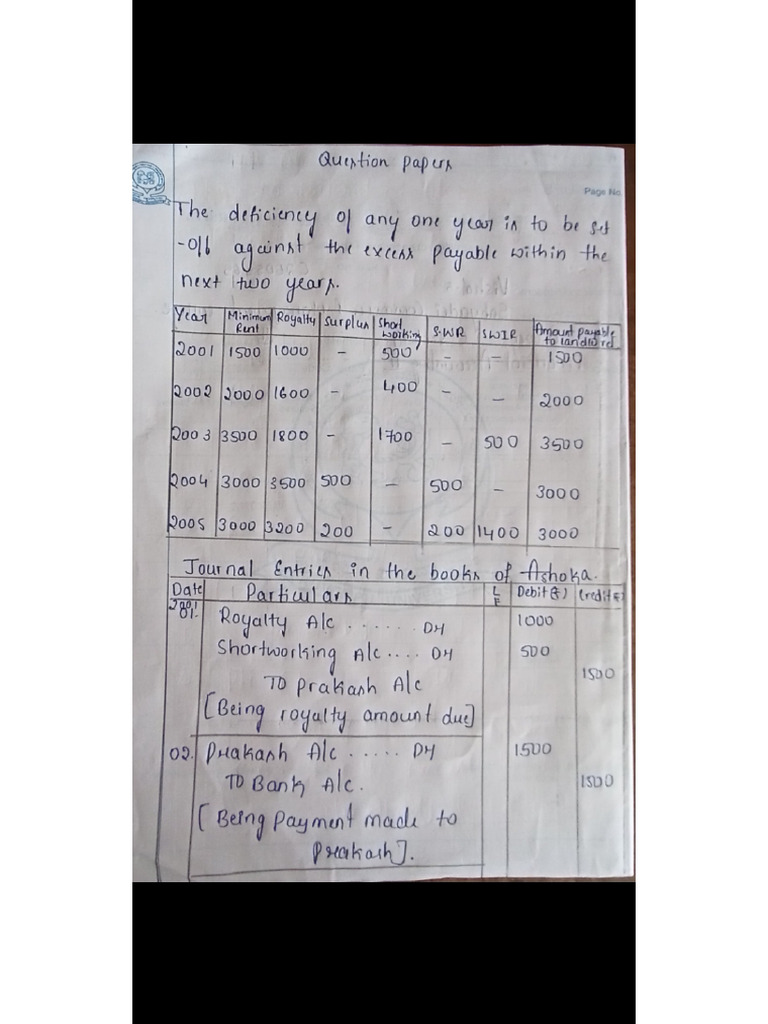 Question papers
Page No
The deficiency of any one year is to be set
-off against the excess payable within the
next two years.
Year | Minimum Rent | Royalty | Surplus | Short working | S.WR | SWIR | Amount payable to landlord
2001 | 1500 | 1000 | - | 500 | - | - | 1500
2002 | 2000 | 1600 | - | 400 | - | - | 2000
2003 | 3500 | 1800 | - | 1700 | - | 500 | 3500
2004 | 3000 | 3500 | 500 | - | 500 | - | 3000
2005 | 3000 | 3200 | 200 | - | 200 | 1400 | 3000
Journal Entries in the books of Ashoka.
Date | Particulars | L F | Debit(₹) | Credit(₹)
01. Royalty A/c ...... Dr 1000
Shortworking A/c .... Dr 500
To Prakash A/c 1500
[Being royalty amount due]
02. Prakash A/c ..... Dr 1500
To Bank A/c. 1500
[Being payment made to
Prakash].